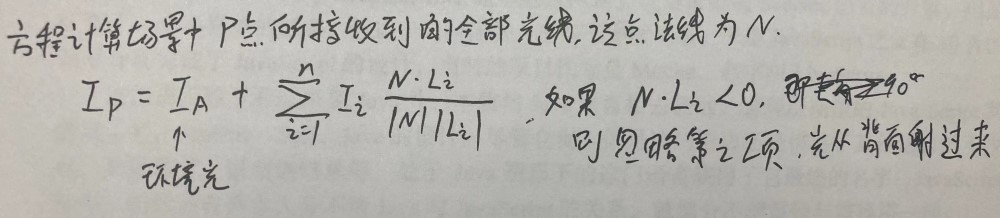 方程计算场景中 P点所接收到的全部光线,该点法线为 N.
I_P = I_A + \sum_{i=1}^{n} I_i \frac{N·L_i}{|N||L_i|} , 如果 N·L_i <0,
↑ 则忽略第i项,光从背面射过来
环境光